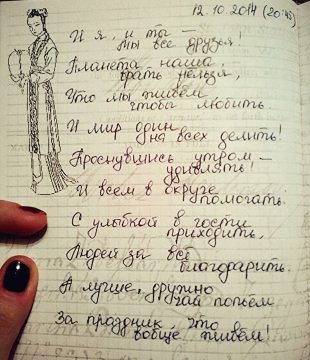 12.10.2014 (20:45)
И я, и ты —
мы все друзья!
Планета наша,
врать нельзя,
Что мы живём
чтобы любить.
И мир один
на всех делить!
Проснувшись утром —
удивлять!
И всем в округе
помогать.
С улыбкой в гости
приходить,
Людей за всё
благодарить.
А лучше, дружно
чай попьём
За праздник, что
вообще живём!